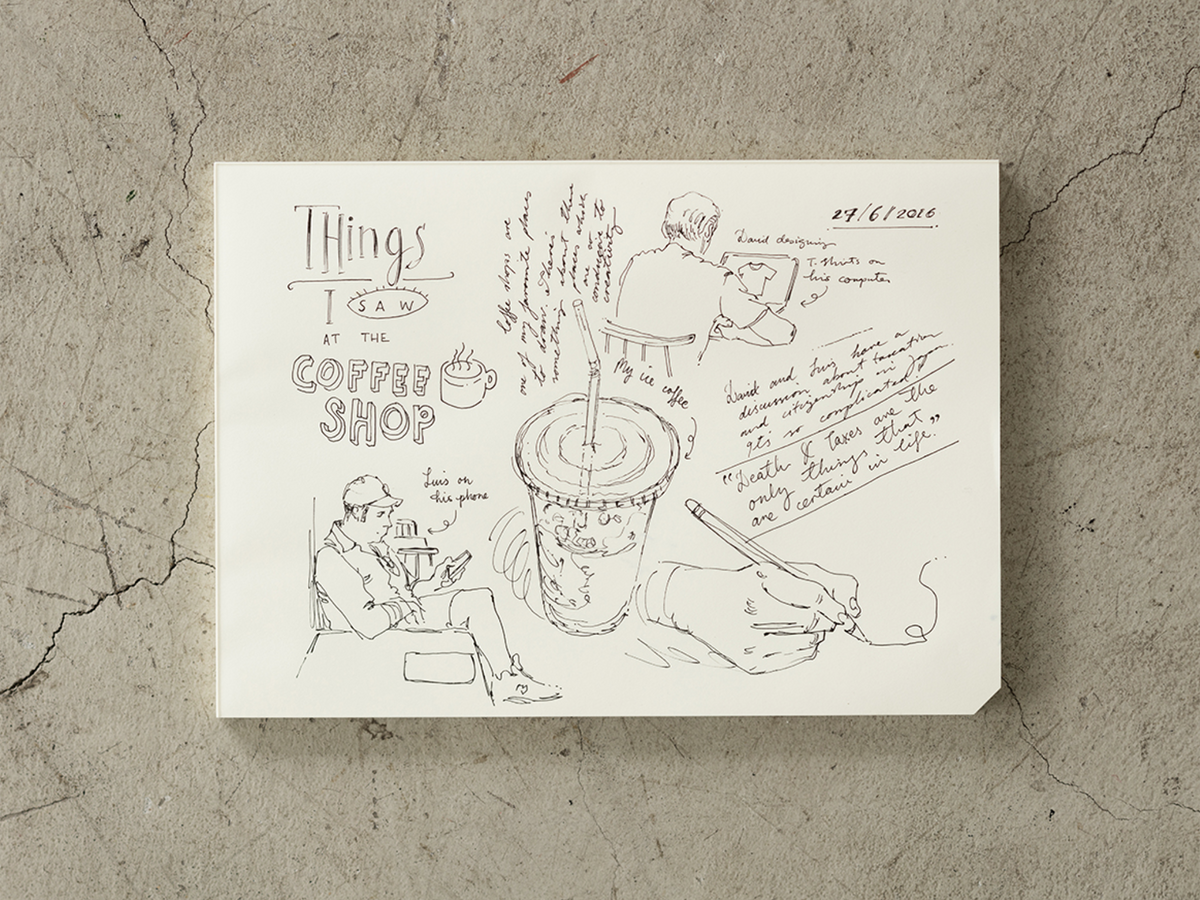 THings
I SAW
AT THE
COFFEE
SHOP
Coffee shops are
one of my favorite places
to draw. There's
something about these
places which
are so
conducive to
creativity
27/6/2016
David designing
T.shirts on
his computer
My ice coffee
David and Luis have a
discussion about taxation
and citizenship in Japan.
It's so complicated!
"Death & Taxes are the
only things that
are certain in life."
Luis on
his phone